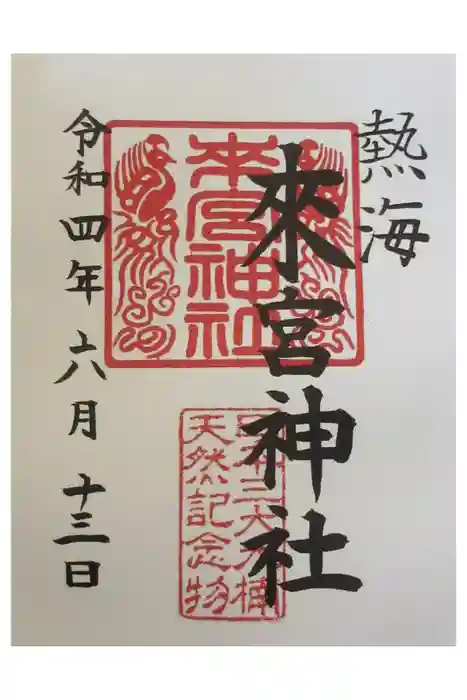 熱海
來宮神社
令和四年六月十三日
來宮神社
日本三大大楠
天然記念物